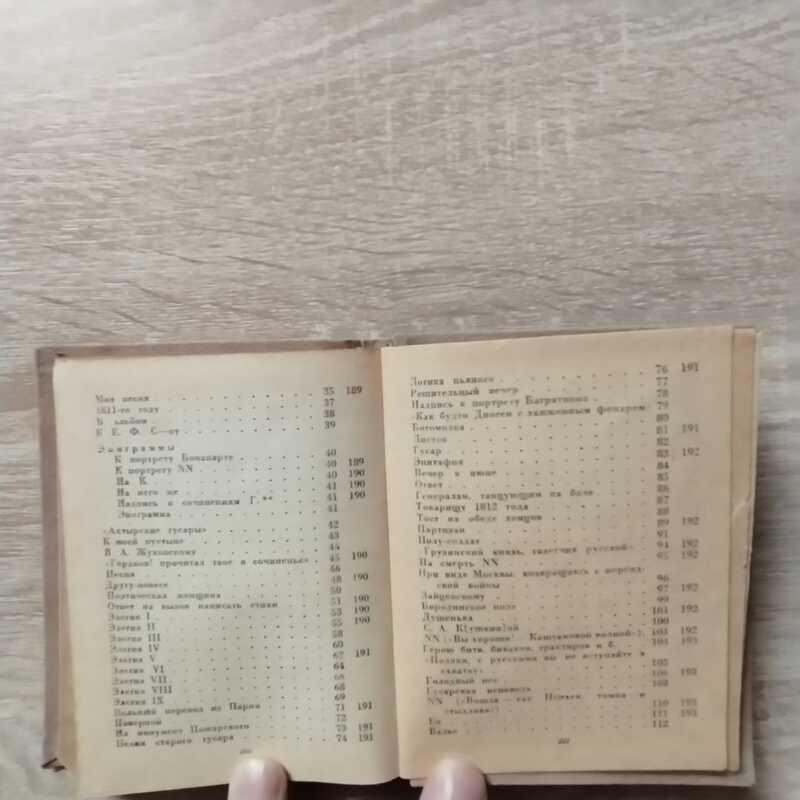 Моя песня 35 189
1811-го году 37
В альбом 38
К Е. Ф. С—ну 39
Эпиграммы
К портрету Бонапарте 40
К портрету NN 40 189
На К. 40 190
На него же 41 190
Надпись к сочинениям Г.** 41 190
Эпиграмма 41
«Ахтырские гусары» 42
К моей пустыне 43
В. А. Жуковскому 44
«Гордков! прочитал твое я сочиненье» 45 190
Песня 46
Другу-повесе 48 190
Поэтическая женщина 50
Ответ на вызов написать стихи 51 190
Элегия I 53 190
Элегия II 55 190
Элегия III 58
Элегия IV 60
Элегия V 62 191
Элегия VI 64
Элегия VII 66
Элегия VIII 68
Элегия IX 69
Вольный перевод из Парни 71 191
Поверили 72
На монумент Пожарского 73 191
Песня старого гусара 74 191
Логика пьяного 76 191
Решительный вечер 77
Надпись к портрету Багратиона 78
«Как будто Диоген с зажженным фонарем» 79
Богомолка 80
Листок 81 191
Гусар 82
Эпитафия 83 192
Вечер в июне 84
Ответ 85
Генералам, танцующим на бале 86
Товарищу 1812 года 87
Тост на обеде донцов 88
Партизан 89 192
Полу-солдат 91
«Грузинский князь, газетчик русской» 94 192
На смерть NN 95 192
При виде Москвы, возвращаясь с персидской войны 96
Зайцевскому 97 192
Бородинское поле 99
Душенька 101 192
С. А. К[ушкин]ой 100
NN («Вы хороши! Каштановой волной») 103 192
Герою битв, биваков, трактиров и б. 104 193
«Поляки, с русскими вы не вступайте в
схватку» 105
Голодный пес 106 193
Гусарская исповедь 108
NN («Вошла — как Психея, томна и
стыдлива») 110 193
Ей 111 193
Вальс 112